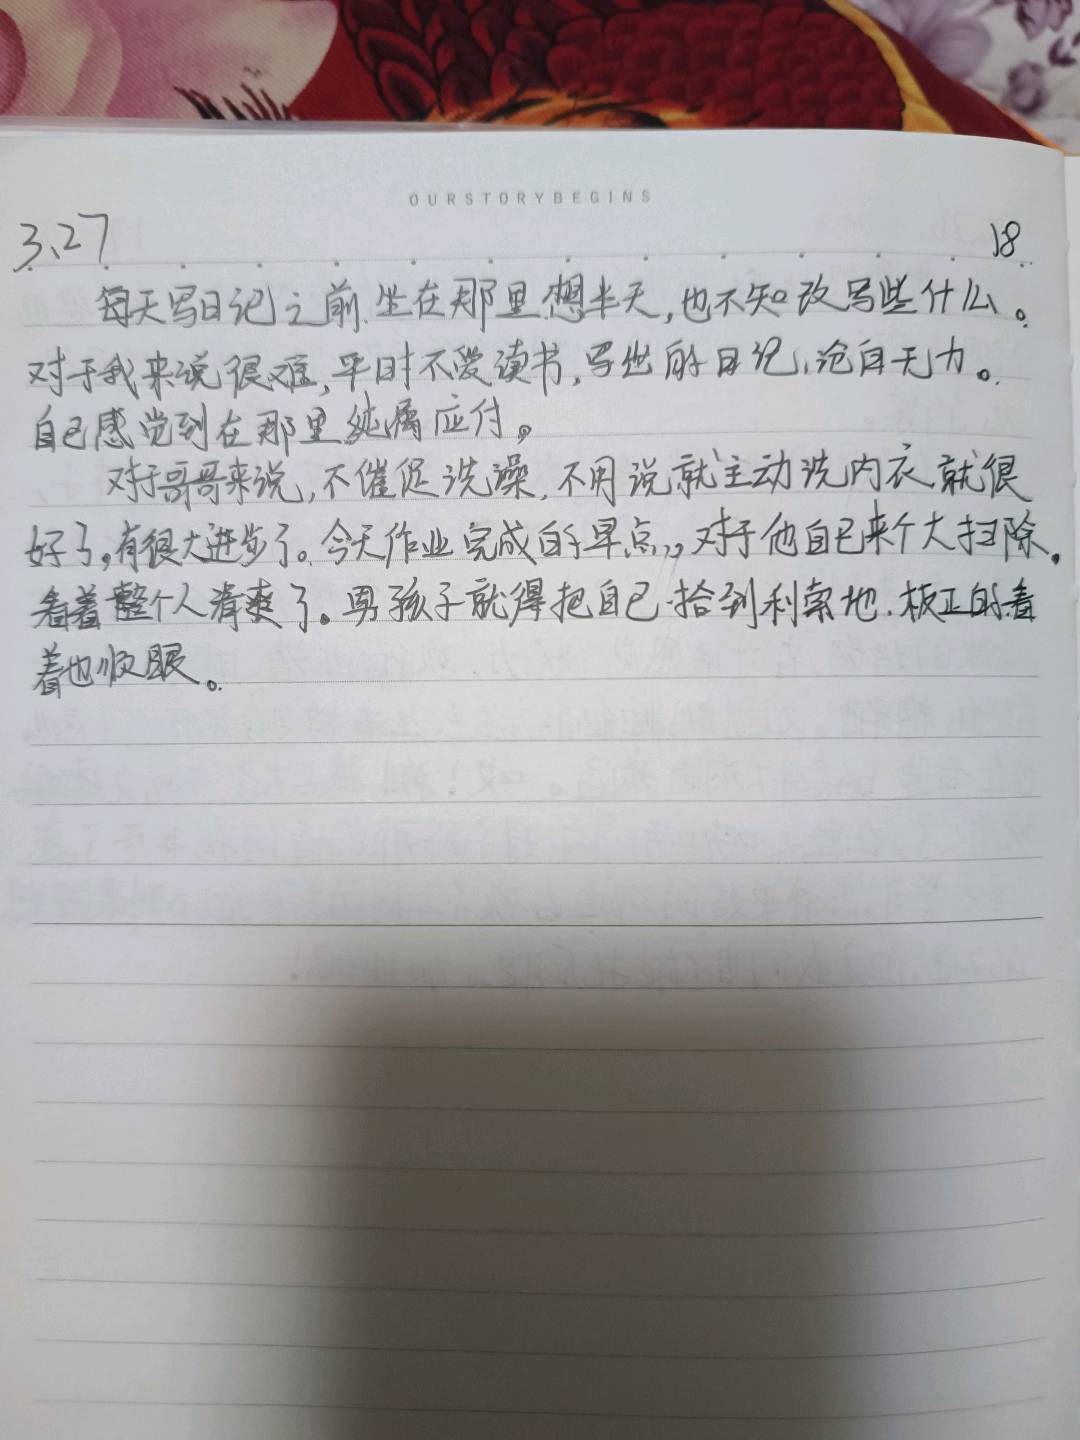 OURSTORYBEGINS
3、27 18
每天写日记之前、坐在那里想半天，也不知改写些什么。
对于我来说很难，平时不爱读书，写出的日记，沧白无力。
自己感觉到在那里纯属应付。
对于哥哥来说，不催促洗澡，不用说就主动洗内衣就很
好了，有很大进步了。今天作业完成的早点，，对于他自己来个大扫除。
看着整个人清爽了。男孩子就得把自己拾到利索地．板正的看
着也顺眼。